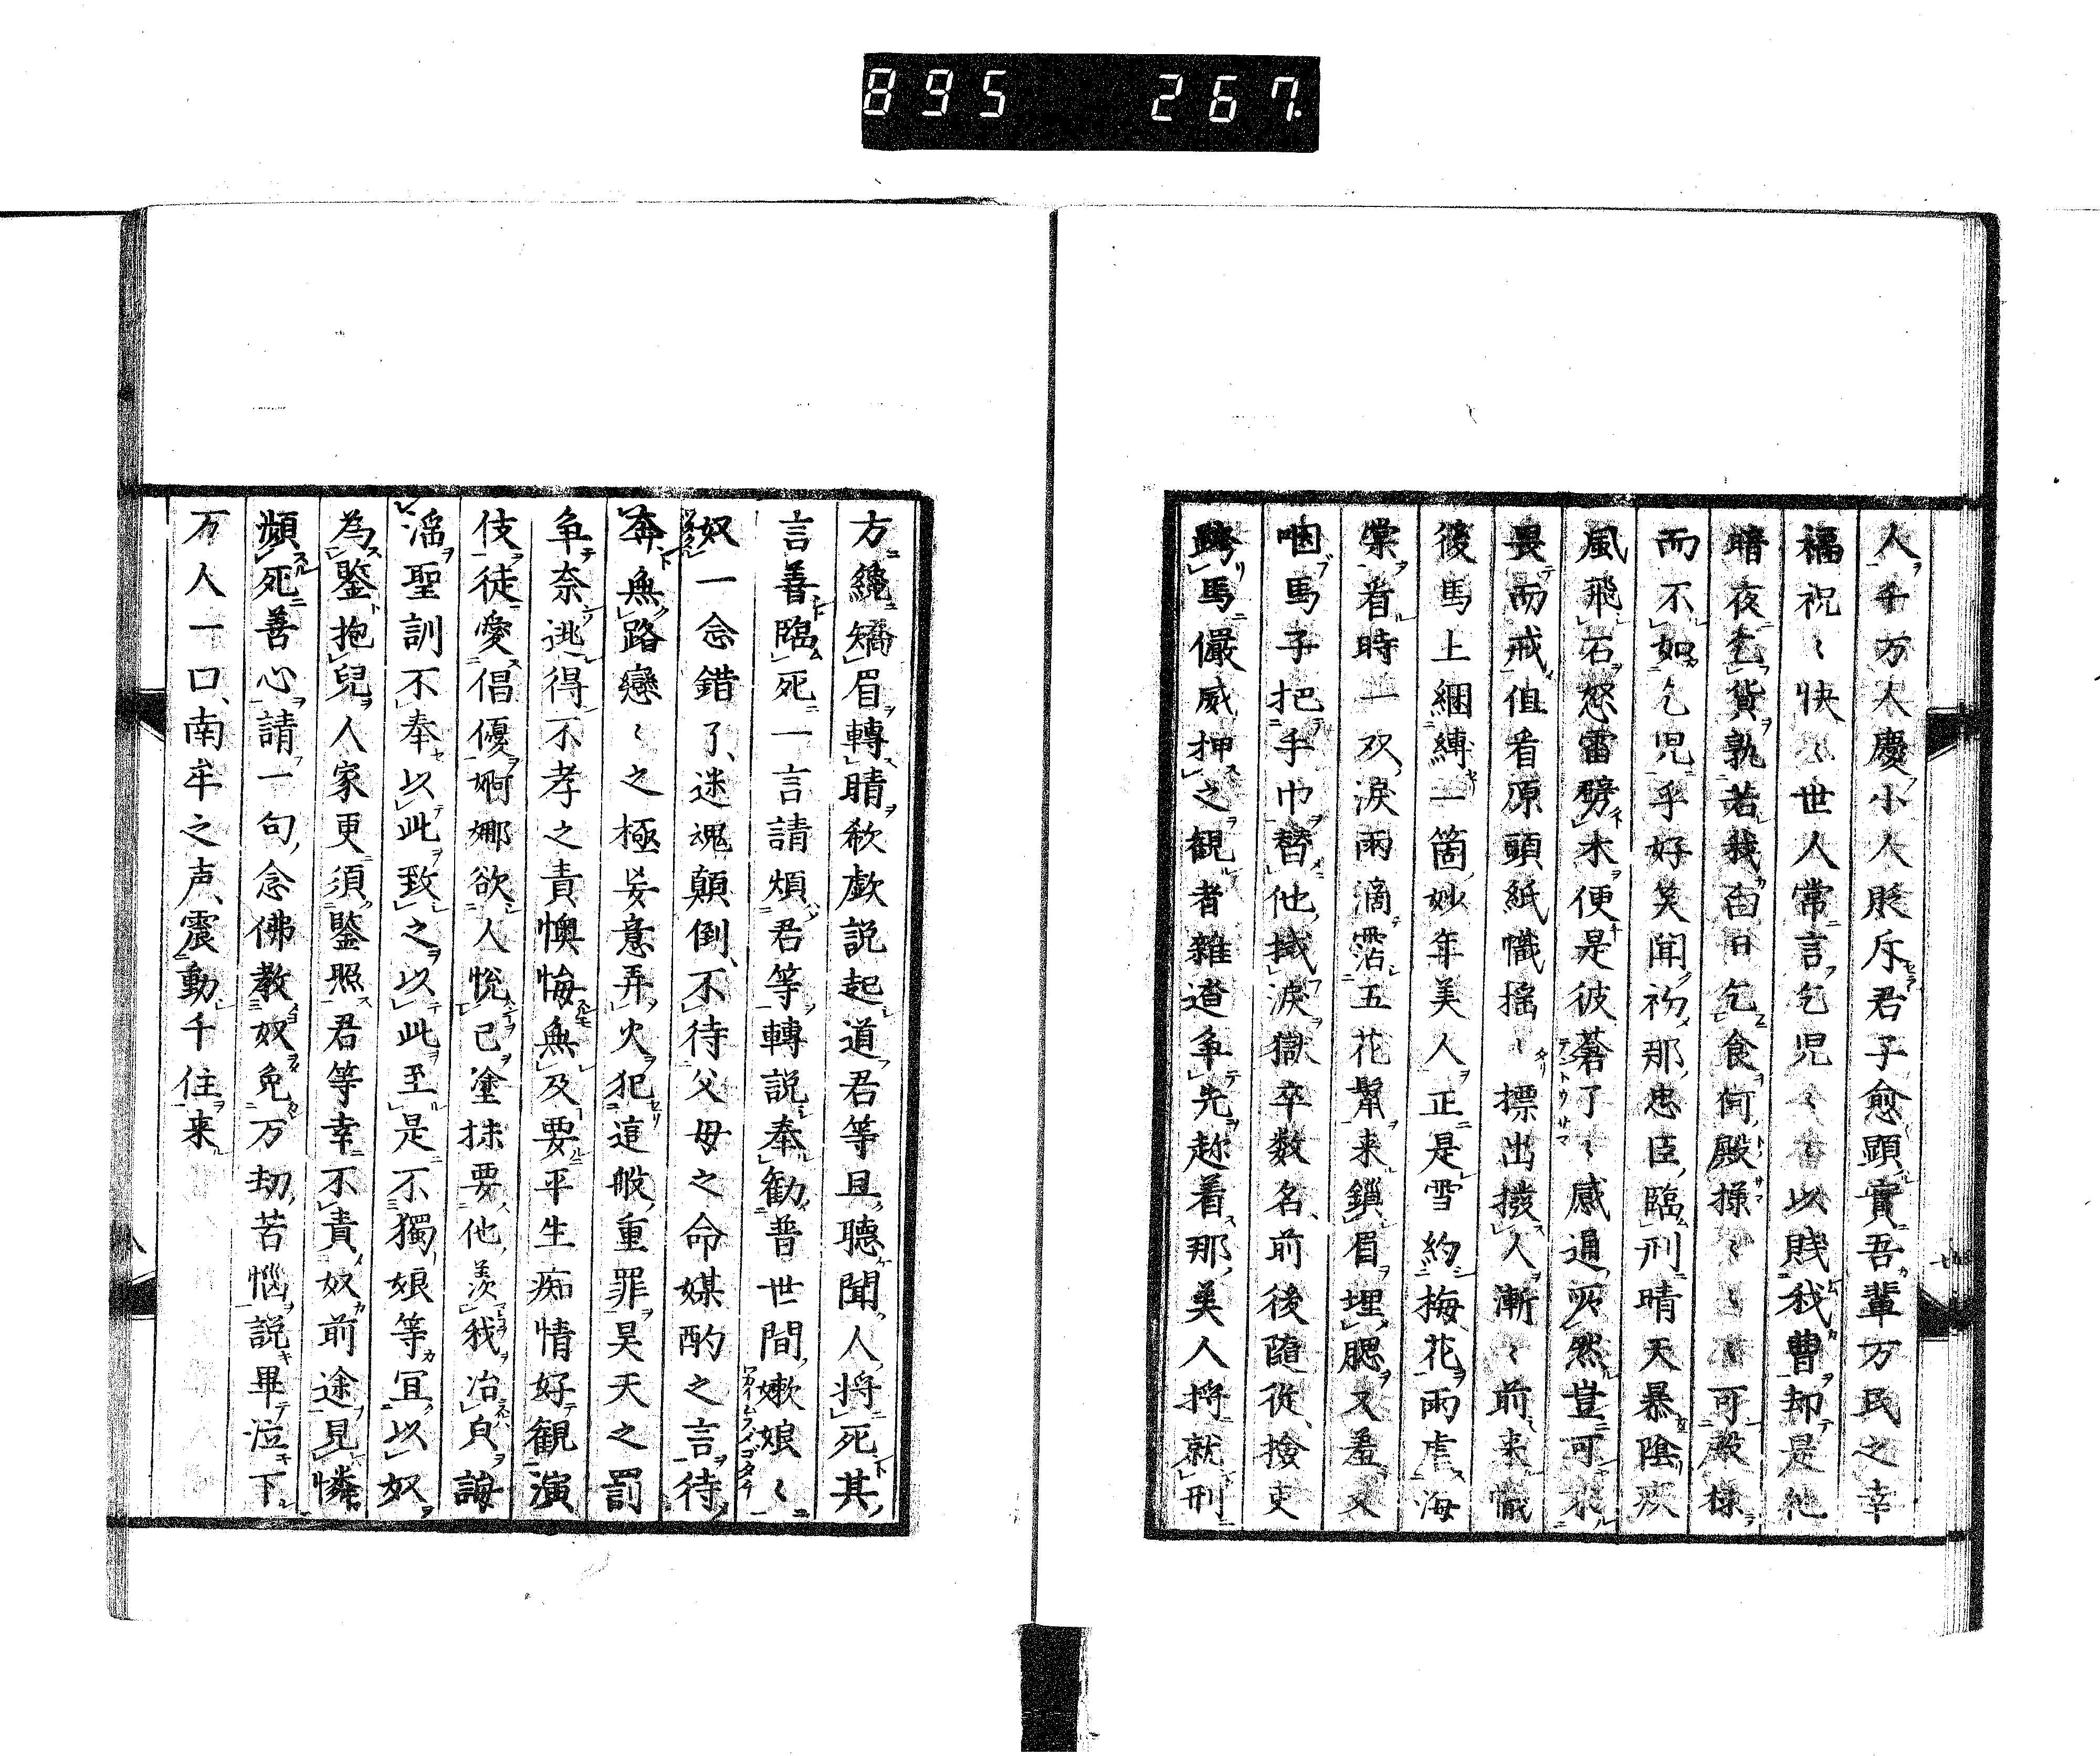 895 267.
人千万人慶小人貶斥君子愈顕實吾輩万民之幸
福祝〻快〻世人常言乞児〻〻以賎我曹却是他
暗夜乞貨孰若我白日乞食何殿様〻〻〻可殿様
而不如乞児乎好笑聞初那忠臣臨刑晴天暴陰疾
風飛石怒雷劈木便是彼蒼了〻感通灾然豈可不
畏而戒但看原頭紙幟揺〻標出撥人漸〻前来幟
後馬上綑縛一箇妙年美人正是雪約梅花雨虐海
棠看時一双涙雨滴霑五花鬣来鎖眉埋腮又羞又
咽馬子把手巾替他搣涙獄卒数名前後随従撿吏
跨馬儼威押之観者雑遝争先趂着那美人将就刑
方纔矯眉轉睛欷歔説起道君等且聴聞人将死其
言善臨死一言請煩君等轉説奉勧普世間嫩娘〻
奴一念錯了、迷魂顛倒、不待父母之命媒酌之言待
奔無路戀〻之極妄意弄火犯這般重罪昊天之罰
争奈逃得不孝之責懊悔無及要平生痴情好観演
伎徒愛倡優婀娜欲人悦己塗抹要他羨我冶貞誨
滛聖訓不奉以此致之以此至是不獨娘等冝以奴
為鑒抱兒人家更須鑒照君等幸不責奴前途見憐
頻死善心請一句念佛教奴免万劫苦悩説畢泣下
万人一口、南牟之声、震動千住来
八